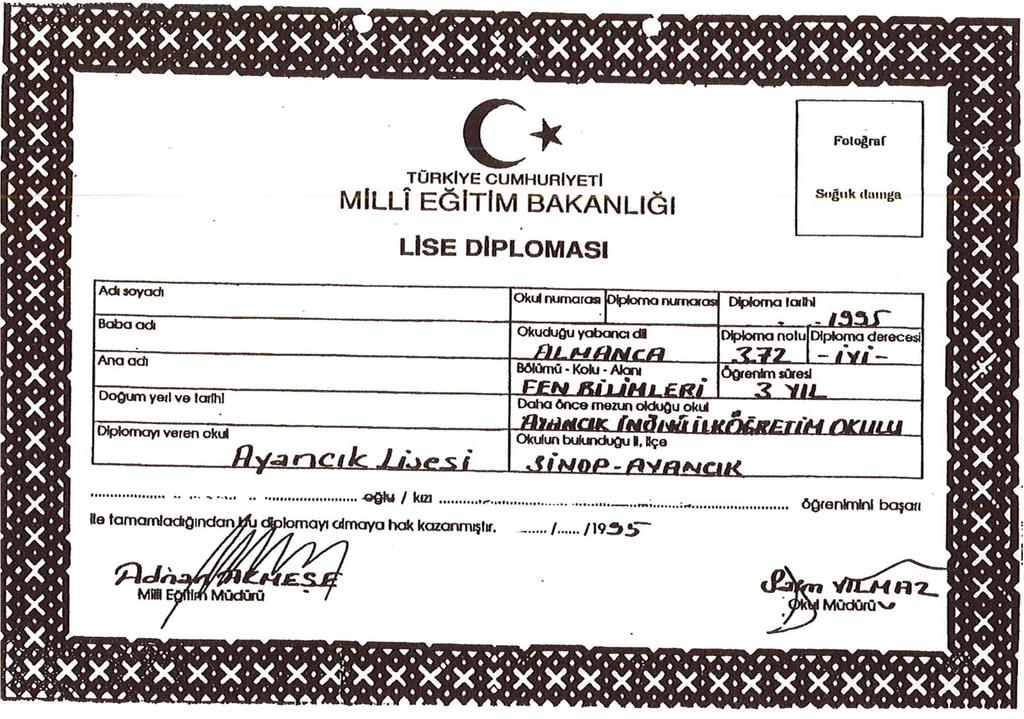 TÜRKİYE CUMHURİYETİ
MİLLÎ EĞİTİM BAKANLIĞI
LİSE DİPLOMASI
Fotoğraf
Soğuk damga
Adı soyadı
Okul numarası Diploma numarası Diploma tarihi
. . 1995
Baba adı
Okuduğu yabancı dil Diploma notu Diploma derecesi
ALMANCA 3.72 - İYİ -
Ana adı
Bölümü - Kolu - Alanı Öğrenim süresi
FEN BİLİMLERİ 3 YIL
Doğum yeri ve tarihi
Daha önce mezun olduğu okul
AYANCIK İNÖNÜ İLKÖĞRETİM OKULU
Diplomayı veren okul
Okulun bulunduğu il, ilçe
Ayancık Lisesi SİNOP - AYANCIK
oğlu / kızı öğrenimini başarı
ile tamamladığından bu diplomayı almaya hak kazanmıştır. ....../....../1995
Adnan AKMEŞE
Milli Eğitim Müdürü
YILMAZ
Okul Müdürü